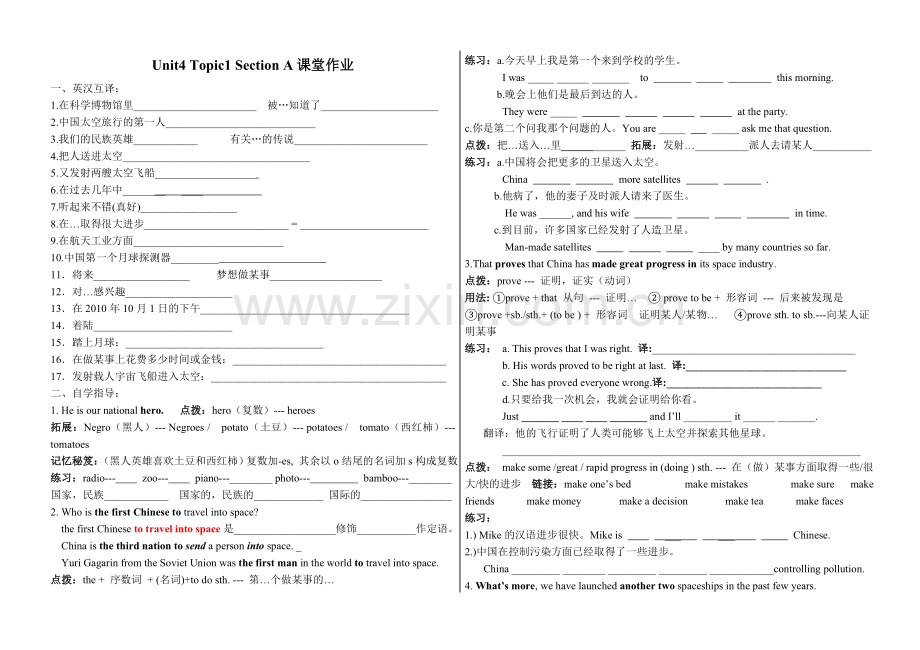 Unit4 Topic1 Section A 课堂作业
一、英汉互译：
1.在科学博物馆里______________________ 被…知道了____________________
2.中国太空旅行的第一人___________________________
3.我们的民族英雄____________ 有关…的传说________________________
4.把人送进太空__________________________________
5.又发射两艘太空飞船_______________________
6.在过去几年中_________________________
7.听起来不错(真好)__________________
8.在…取得很大进步__________________________ = _________________________
9.在航天工业方面___________________________
10.中国第一个月球探测器____________________________
11．将来__________________ 梦想做某事____________________
12．对…感兴趣____________________
13．在 2010 年 10 月 1 日的下午______________________________________
14．着陆_________________________
15．踏上月球：_________________________
16．在做某事上花费多少时间或金钱：______________________________________
17．发射载人宇宙飞船进入太空：__________________________________________
二、自学指导：
1. He is our national hero. 点拨：hero（复数）--- heroes
拓展：Negro（黑人）--- Negroes / potato（土豆）--- potatoes / tomato（西红柿）---
tomatoes
记忆秘笈：(黑人英雄喜欢土豆和西红柿）复数加-es, 其余以 o 结尾的名词加 s 构成复数
练习：radio---____ zoo---____ piano---_________ photo---_________ bamboo---________
国家，民族____________ 国家的，民族的____________ 国际的________________
2. Who is the first Chinese to travel into space?
the first Chinese to travel into space 是__________________修饰__________作定语。
China is the third nation to send a person into space. _
Yuri Gagarin from the Soviet Union was the first man in the world to travel into space.
点拨：the + 序数词 + (名词)+to do sth. --- 第…个做某事的…
练习：a.今天早上我是第一个来到学校的学生。
I was _____ ______ _______ to _______ _____ ________ this morning.
b.晚会上他们是最后到达的人。
They were _____ _______ ______ ______ ______ at the party.
c.你是第二个问我那个问题的人。You are _____ ___ _____ ask me that question.
点拨：把…送入…里____________ 拓展：发射…__________派人去请某人___________
练习：a.中国将会把更多的卫星送入太空。
China _______ _______ more satellites ______ ______ .
b.他病了，他的妻子及时派人请来了医生。
He was ______, and his wife ______ ______ ______ ______ in time.
c.到目前，许多国家已经发射了人造卫星。
Man-made satellites _____ _____ _____ ____ by many countries so far.
3.That proves that China has made great progress in its space industry.
点拨：prove --- 证明，证实（动词）
用法: ①prove + that 从句 --- 证明… ② prove to be + 形容词 --- 后来被发现是
③prove +sb./sth.+ (to be ) + 形容词 证明某人/某物… ④prove sth. to sb.---向某人证
明某事
练习： a. This proves that I was right. 译:_____________________________________
b. His words proved to be right at last. 译:________________________________
c. She has proved everyone wrong.译:____________________________
d.只要给我一次机会，我就会证明给你看。
Just _________ ____ ____ _____ and I’ll _______ it _______ _______.
翻译：他的飞行证明了人类可能够飞上太空并探索其他星球。
_________________________________________________________________
点拨： make some /great / rapid progress in (doing ) sth. --- 在（做）某事方面取得一些/很
大/快的进步 链接：make one’s bed make mistakes make sure make
friends make money make a decision make tea make faces
练习：
1.) Mike 的汉语进步很快。Mike is ____ _______ _____ _____ Chinese.
2.)中国在控制污染方面已经取得了一些进步。
China _________ _________ _________ _________ ____________controlling pollution.
4. What’s more, we have launched another two spaceships in the past few years.
www.zixin.com.cn